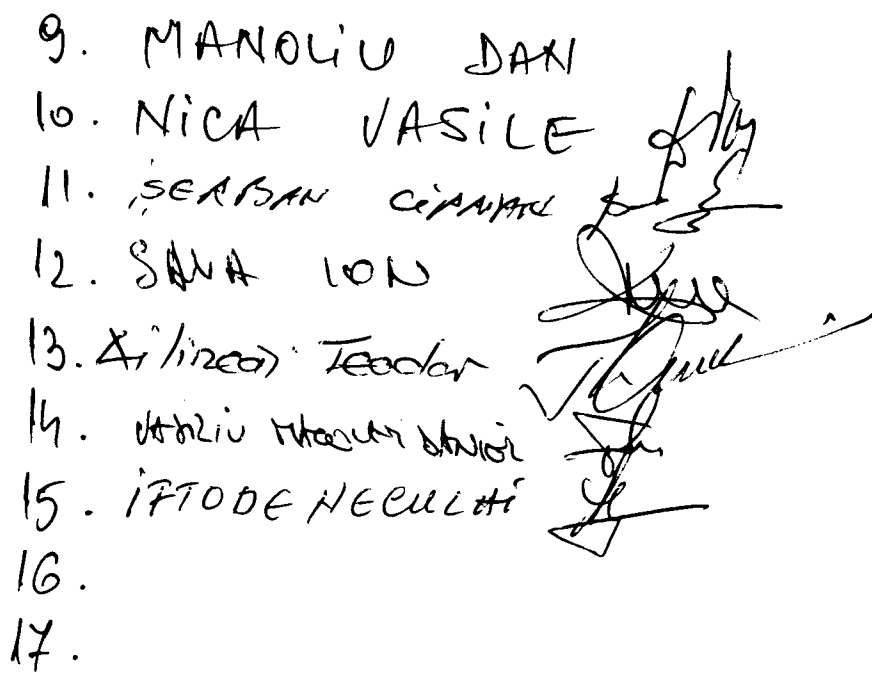 9. MANOLiU DAN
10. NiCA VASiLE
11. ȘERBAN CiPRIAN
12. SAVA ION
13. Teodor
14. VASILIU DANiEL
15. iFTODE NECULAi
16.
17.